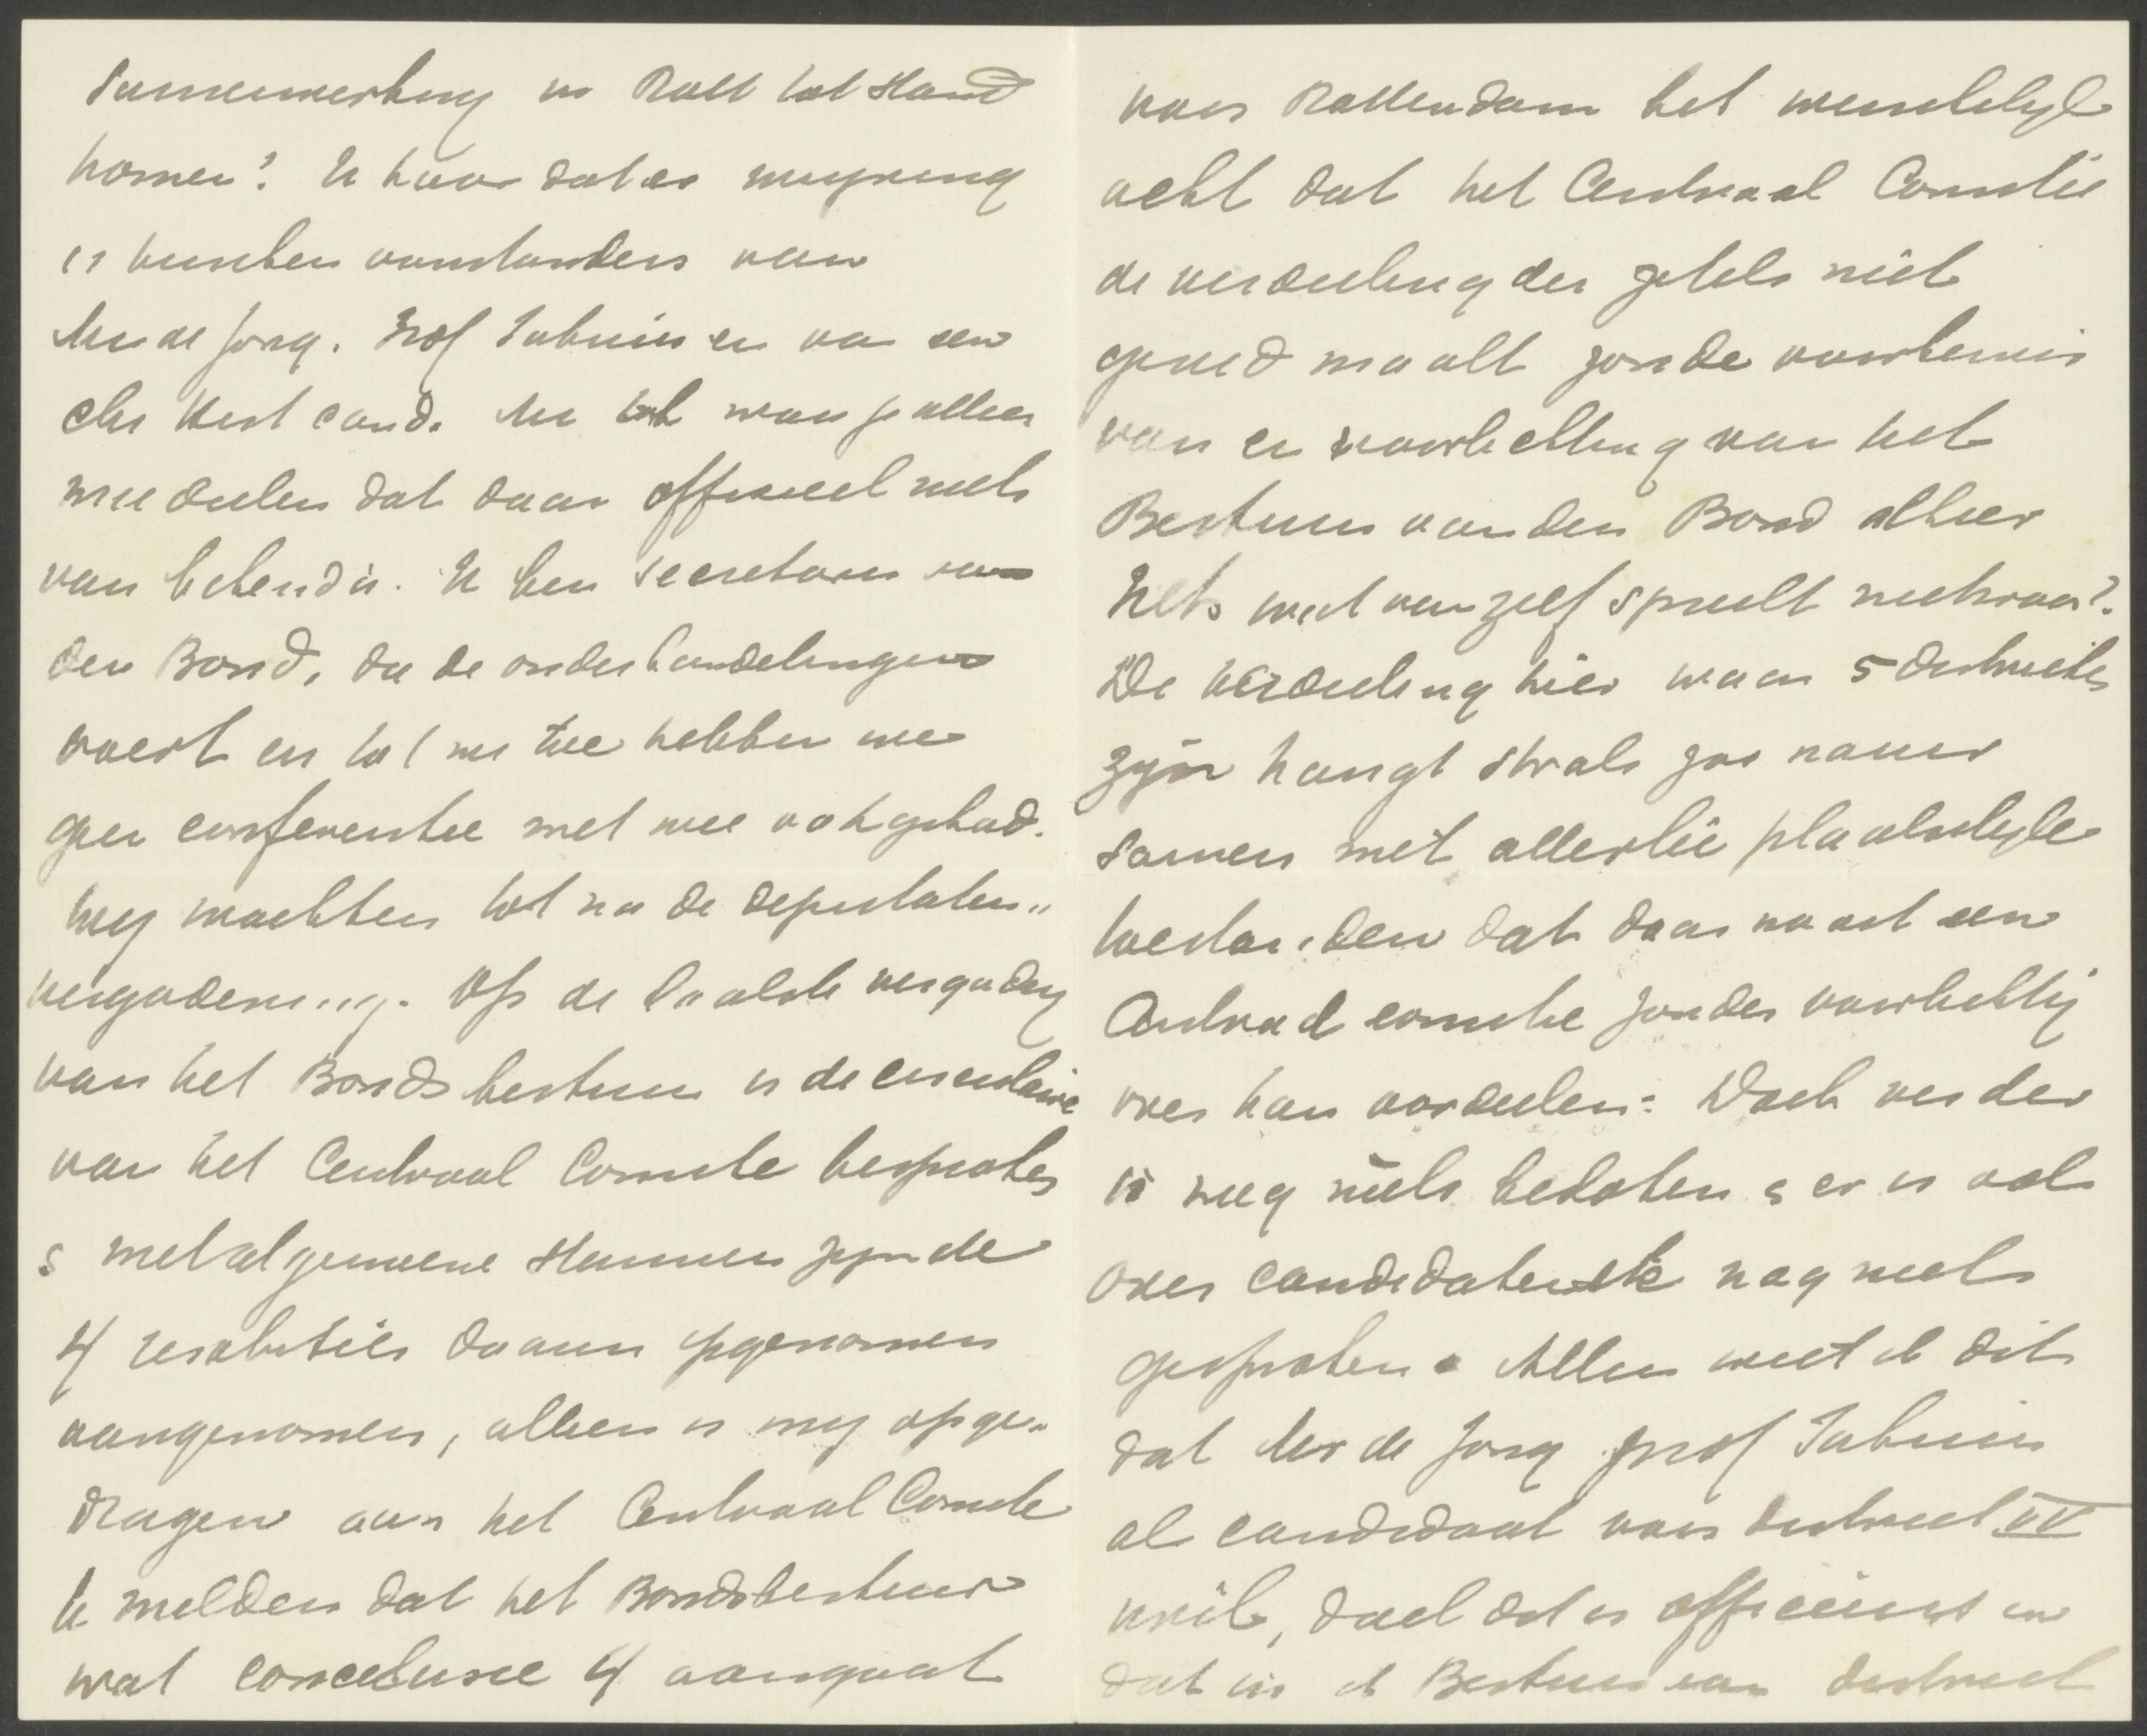 Samenwerking in Rott tot stand
komen? Ik hoor dat er
is tusschen voorstanders van
Mr de Jong. Prof Fabius en van een
Chr Hist cand. Ik kan je alleen
mee deelen dat daar officieel niets
van bekend is. Ik ben secretaris van
den Bond, die de onderhandelingen
voert en tot nu toe hebben we
geen conferentie met wie ook gehad.
Wij wachten tot na de deputaten„
vergadering. Op de laatste vergadering
van het Bondsbestuur is de circulaire
van het Centraal Comite besproken
& met algemeene stemmen zijn de
4 resoluties daarin opgenomen
aangenomen, alleen is mij opge„
dragen aan het Centraal Comite
te melden dat het Bondsbestuur
wat conclusie 4 aangaat
voor Rotterdam het wenschelijk
acht dat het Centraal Comitie
de verdeeling der zetels niet
gereed maakt zonder voorkennis
van en voorlichting van het
Bestuur van den Bond alhier
Iets wat vanzelf spreekt nietwaar?
De verdeeling hier waar 5 districten
zijn hangt straks zoo nauw
samen met allerlei plaatselijke
toestanden dat daar nooit een
Centraal comite zonder voorlichting
over kan oordeelen. Doch verder
is nog niets besloten & er is ook
over candidaten etc nog niets
gesproken. Alleen weet ik dit
dat Mr de Jong prof Fabius
als candidaat voor district IV
wil, doch dat is officieus en
dat in het Bestuur van district